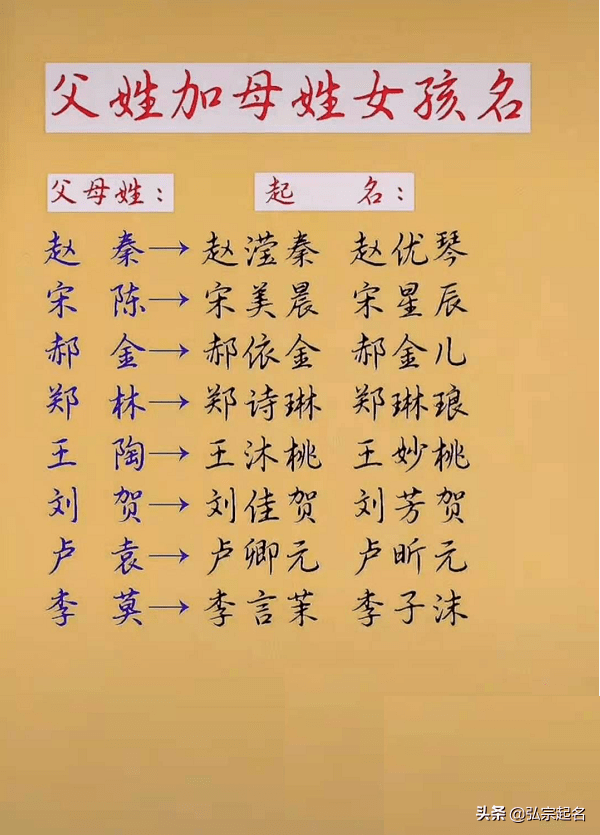 父姓加母姓女孩名
父母姓： 起 名：
赵 秦→赵滢秦 赵优琴
宋 陈→宋美晨 宋星辰
郝 金→郝依金 郝金儿
郑 林→郑诗琳 郑琳琅
王 陶→王沐桃 王妙桃
刘 贺→刘佳贺 刘芳贺
卢 袁→卢卿元 卢昕元
李 莫→李言茉 李子沫
头条 @弘宗起名